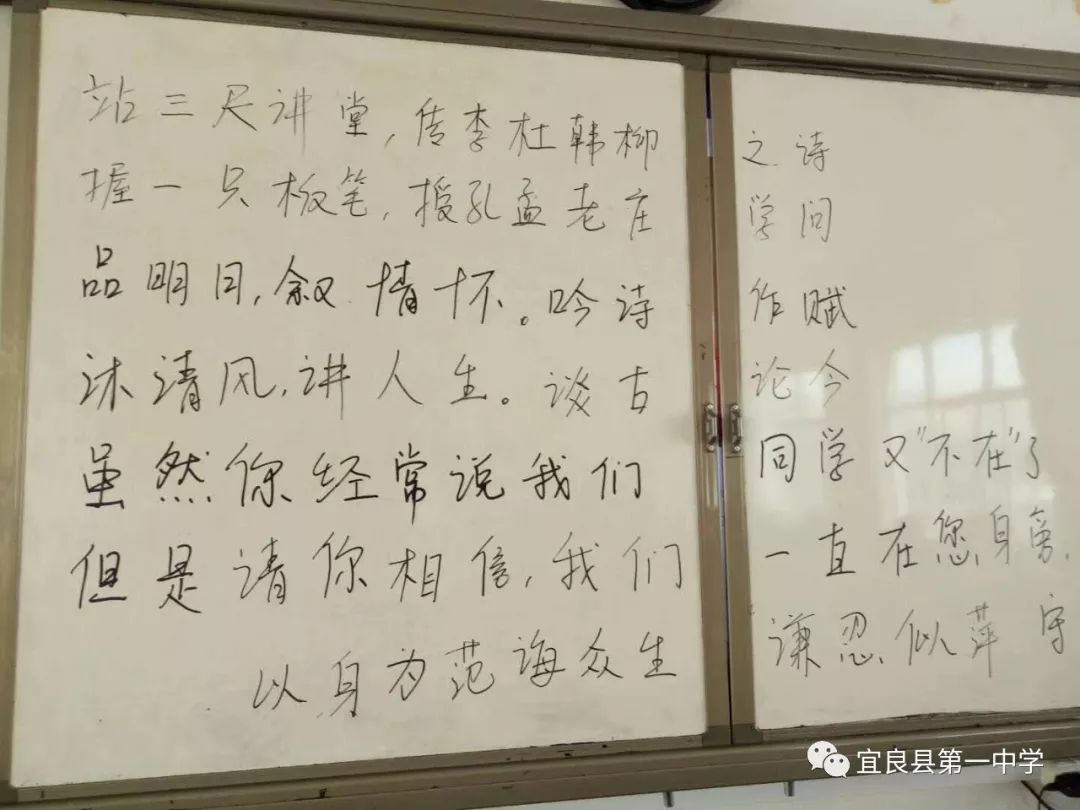 站三尺讲堂,传李杜韩柳之诗
握一只板笔,授孔孟老庄学问
品明月,叙情怀。吟诗作赋
沐清风,讲人生。谈古论今
虽然你经常说我们同学又"不在"了
但是请你相信,我们一直在您身旁,
以身为范诲众生 谦忍似萍守
宜良县第一中学